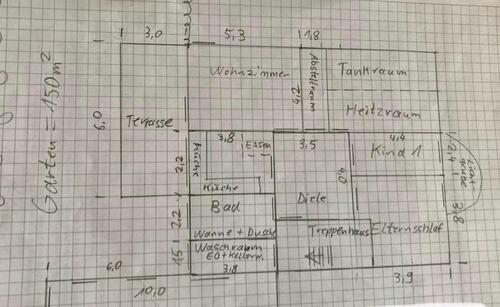 3,0
5,3
1,8
Wohnzimmer
Abstellraum
Tankraum
4,2
Heitzraum
Garten = 150m²
6,0
Terrasse
3,8
Essen
3,5
4,4
Kind 1
2,4
Licht
grube
2,2
Küche
Küche
4,0
Bad
Diele
3,8
2,2
Wanne + Dusche
Treppenhaus
Elternschlaf
Waschraum
EG + Kellerw.
1,5
6,0
3,8
3,9
10,0